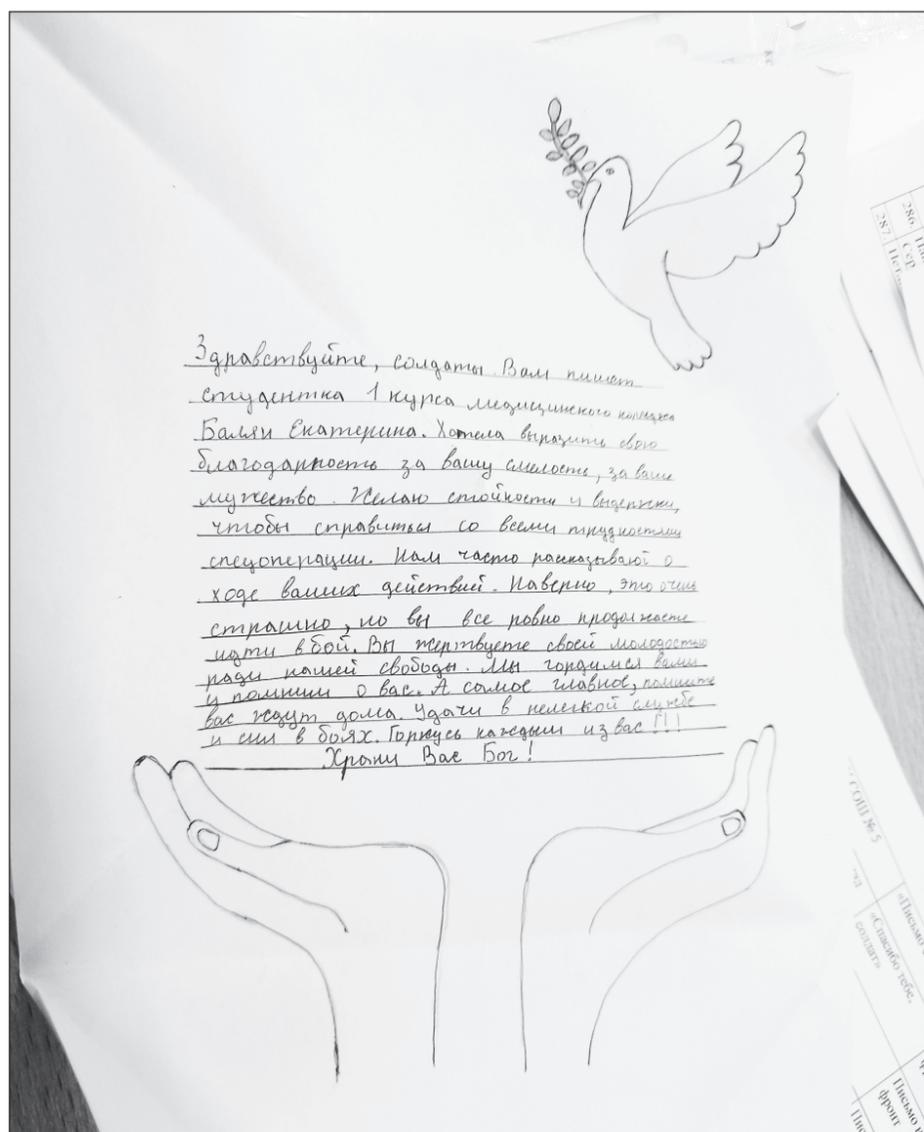 Здравствуйте, солдаты. Вам пишет
студентка 1 курса медицинского колледжа
Балян Екатерина. Хотела выразить свою
благодарность за вашу смелость, за ваше
мужество. Желаю стойкости и выдержки,
чтобы справиться со всеми трудностями
спецоперации. Нам часто рассказывают о
ходе ваших действий. Наверно, это очень
страшно, но вы все ровно продолжаете
идти в бой. Вы жертвуете своей молодостью
ради нашей свободы. Мы гордимся вами
и помним о вас. А самое главное, помните
вас ждут дома. Удачи в нелегкой службе
и сил в боях. Горжусь каждым из вас!!!
Храни Вас Бог!
286.
287.
Сер
СОШ № 5
«Письмо
«Спасибо тебе,
солдат»
Письмо
фронт